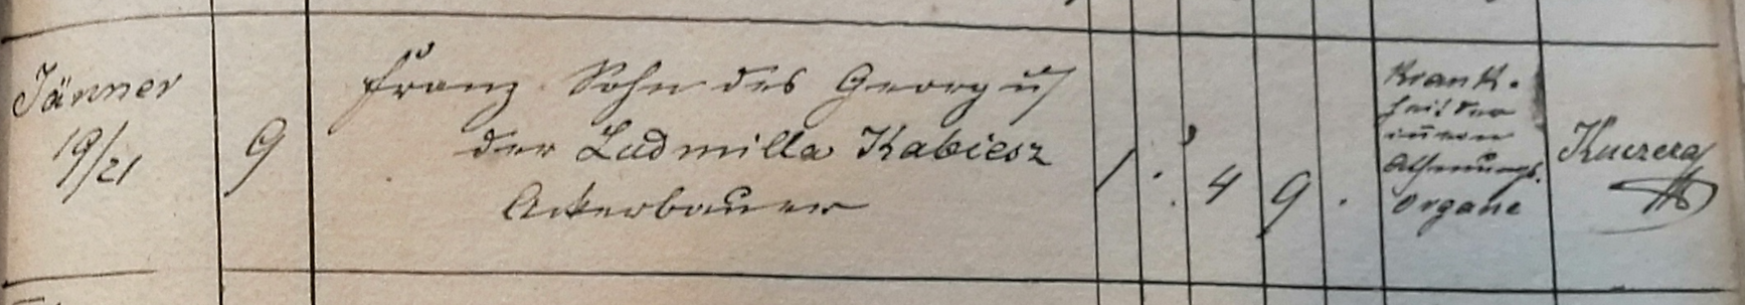 Jänner
19/21
9
Franz Sohn des Georg u
der Ludmilla Kabiesz
Ackerbauer
1 . 4 9 .
Krank.
heit der
innern
Athmungs.
Organe
Kuczera